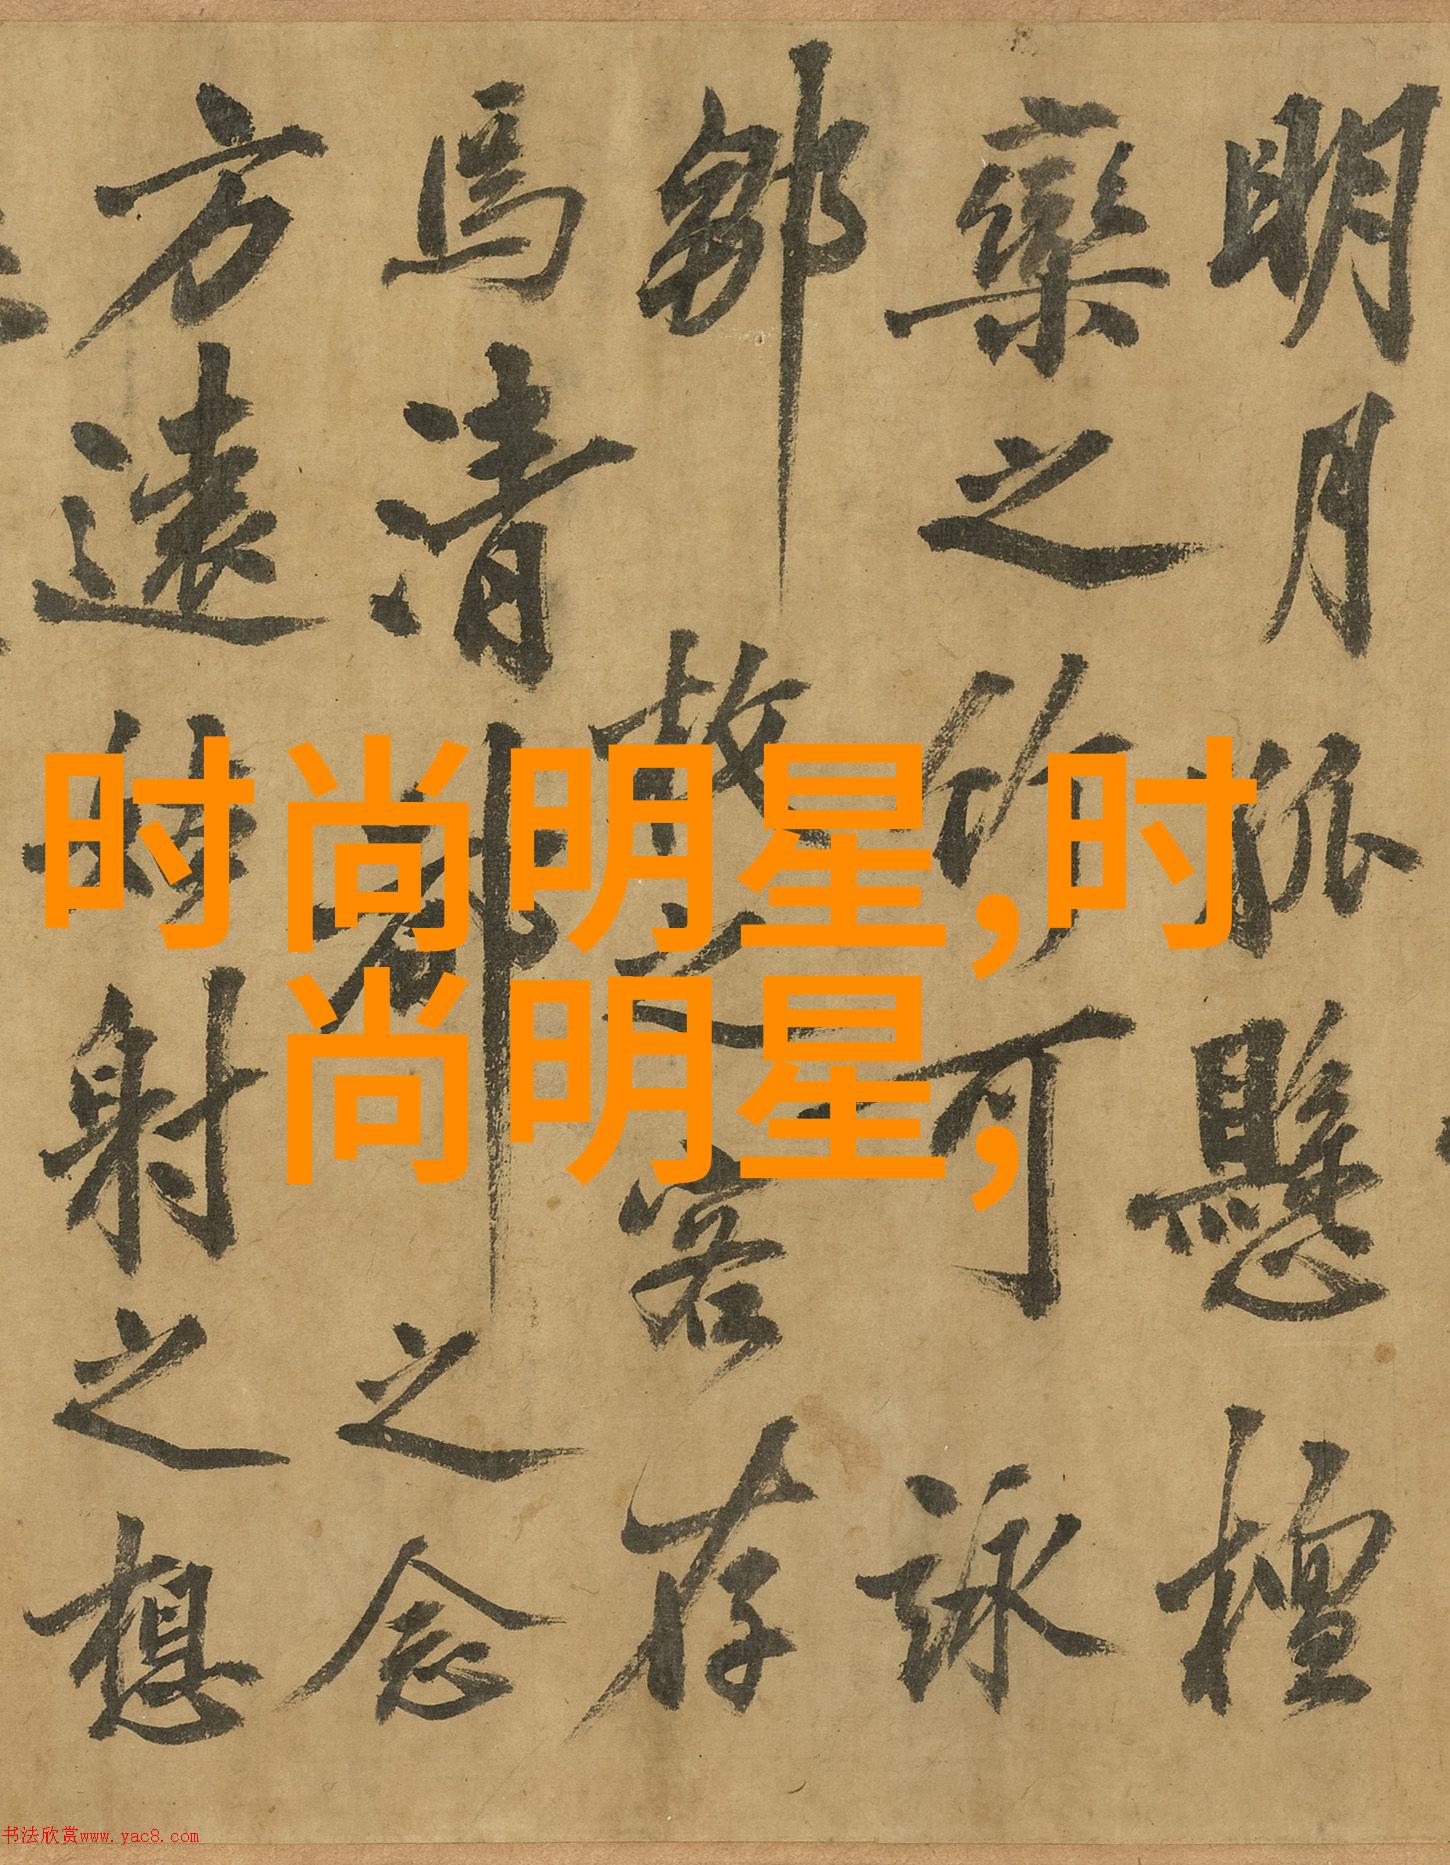 明月孤懸檀
欒之竹可詠
鄒枚之客存
焉清都之念
方遠姑射之想
时尚明星,时
尚明星,
书法欣赏www.yac8.com